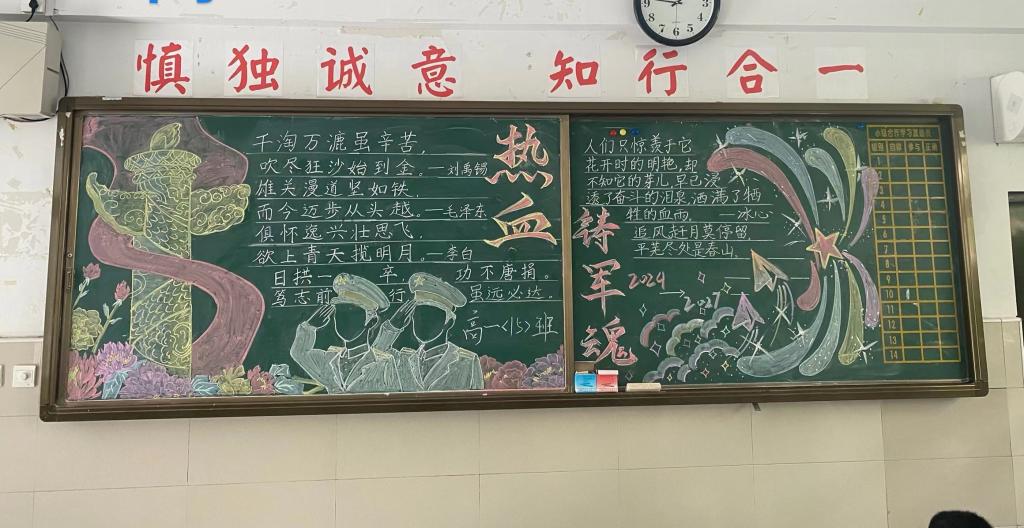 慎独诚意 知行合一
千淘万漉虽辛苦,
吹尽狂沙始到金。—刘禹锡
雄关漫道坚如铁,
而今迈步从头越。—毛泽东
俱怀逸兴壮思飞,
欲上青天揽明月。—李白
日拱一卒 功不唐捐。
笃志前行 虽远必达。
高一<15>班
热血
铸军魂
人们只惊羡于它
花开时的明艳,却
不知它的芽儿,早已浸
透了奋斗的泪泉,洒满了牺
牲的血雨。 —冰心
追风赶月莫停留
平芜尽处是春山。
2024
2027
小组合作学习
组别 自律 参与
1
2
3
4
5
6
7
8
9
10
11
12
13
14